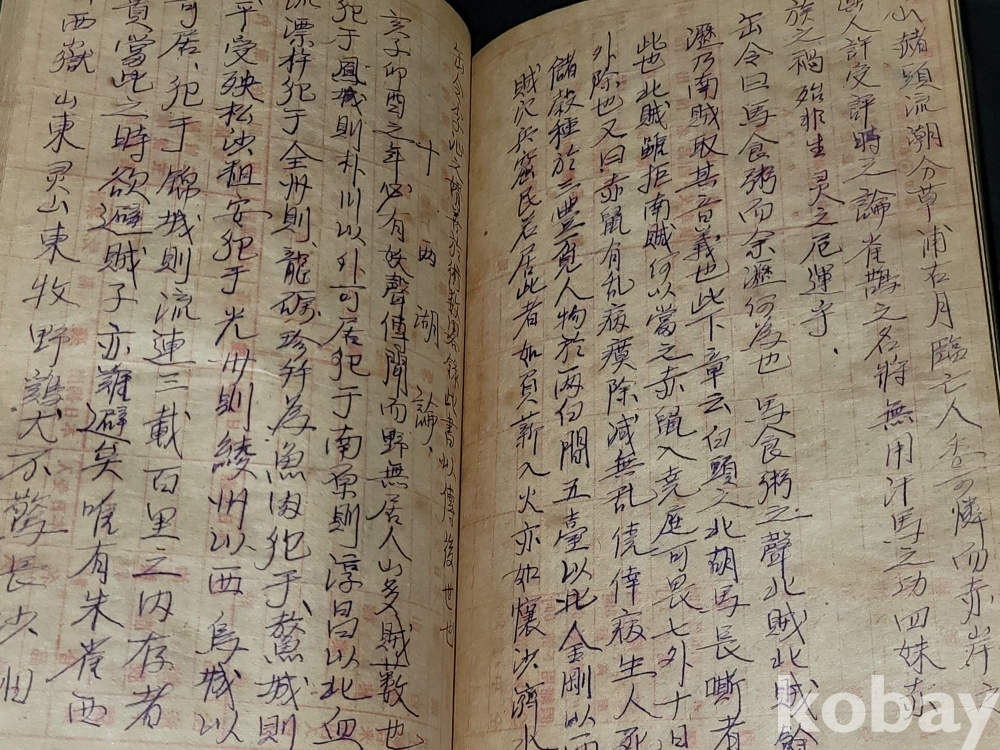 山赭頭流潮分草浦右月臨亡人 可憐而赤岸
人許受評時之論崔鵲之名將無用汁馬之功四妹赤
族之禍殆非生灵之厄運乎
缶令曰馬食粥而余瀝何為也 馬食粥之聲北賊北賊餘
瀝乃南賊取其音義也此下章云白頭之北胡馬長嘶者
此也北賊雖拒南賊何以當之赤鼠入堯庭可畏七外十日
外除也又曰赤鼠有乱病癀除减無乱僥倖病生人死
儲穀種於三豊覓人物於兩白間五臺以北金剛以西
賊穴兵窟民若居此者如負薪入火亦如懷沙濟水
此書以傳後世也
十 兩湖論
亥子卯酉之年必有妖聲值聞而野無居人山多賊薮也
犯于鳳城則朴川以外可居犯于南原則淳昌以北血
流漂杵犯于全州則龍礪珍幷為漁酒犯于鰲城則
平受殃松沙租安犯于光州則綾州以西烏城以
可居犯于錦城則流連三載百里之内存者
貴當此之時欲避賊子亦難避矣唯有朱雀西
西嶽 山東灵山東牧野鷄犬不驚長少相
kobay